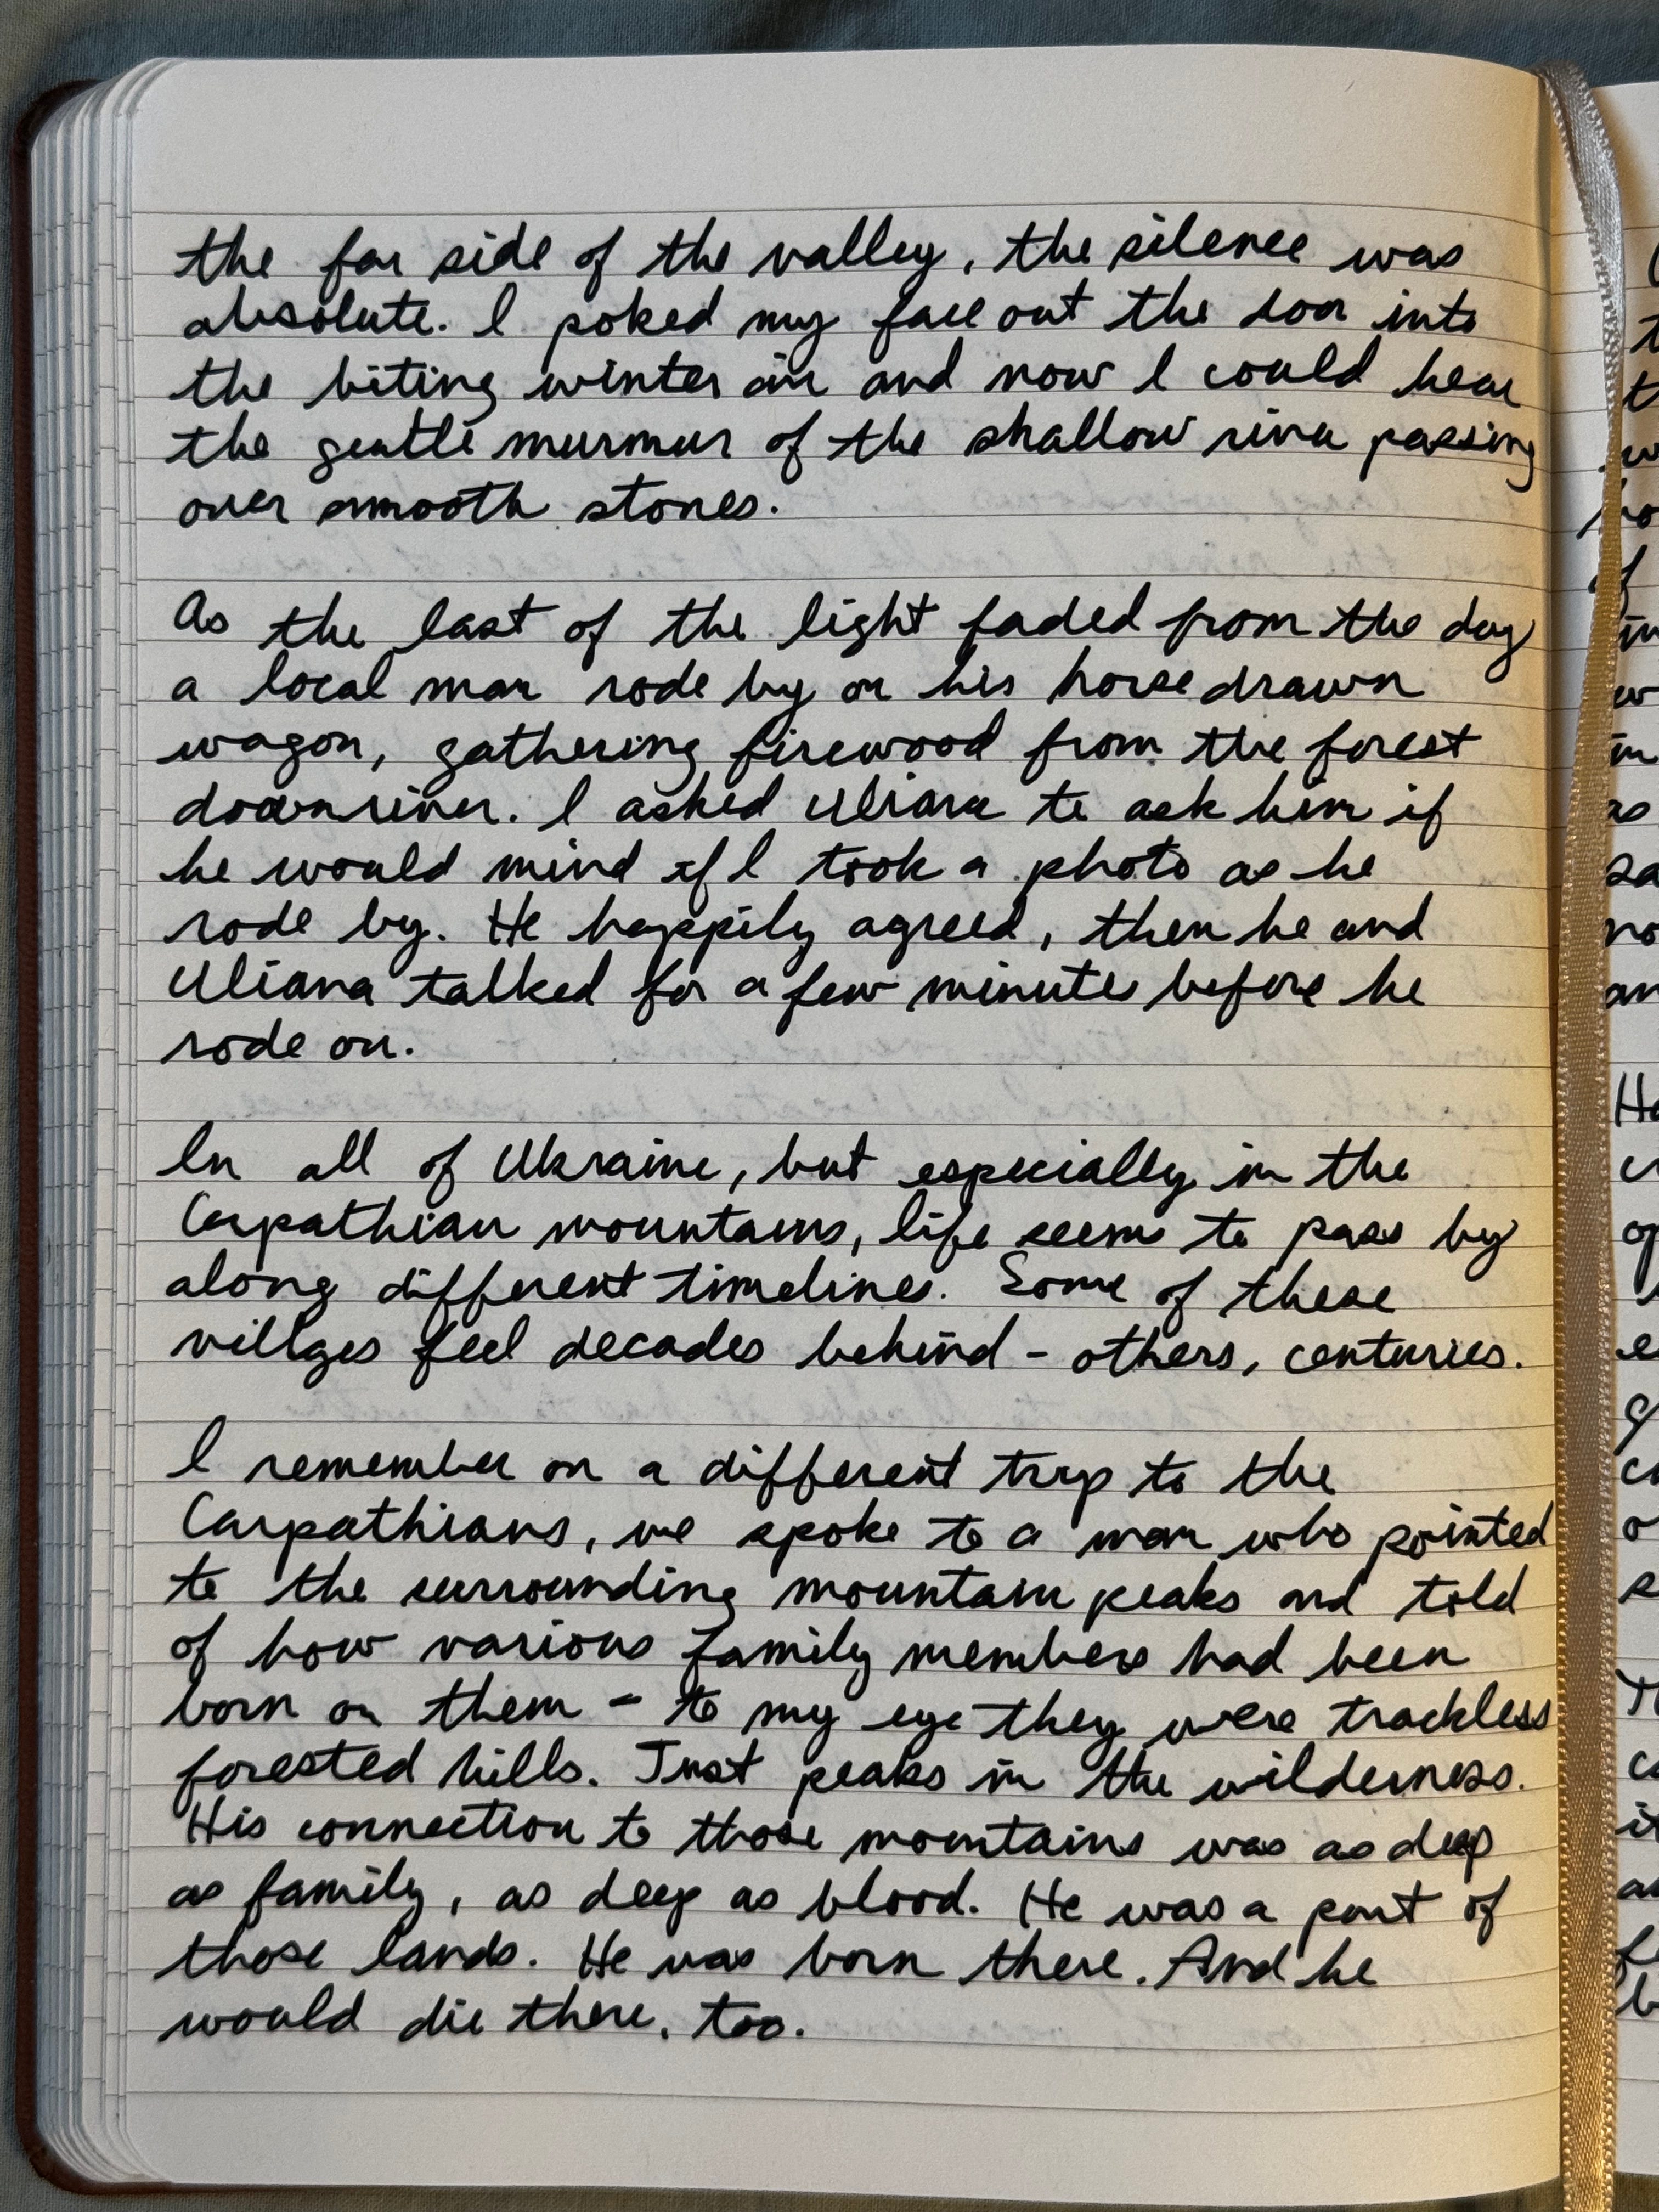 the far side of the valley, the silence was
absolute. I poked my face out the door into
the biting winter air and now I could hear
the gentle murmur of the shallow river passing
over smooth stones.
As the last of the light faded from the day
a local man rode by on his horse drawn
wagon, gathering firewood from the forest
downriver. I asked Uliana to ask him if
he would mind if I took a photo as he
rode by. He happily agreed, then he and
Uliana talked for a few minutes before he
rode on.
In all of Ukraine, but especially in the
Carpathian mountains, life seems to pass by
along different timelines. Some of these
villges feel decades behind - others, centuries.
I remember on a different trip to the
Carpathians, we spoke to a man who pointed
to the surrounding mountain peaks and told
of how various family members had been
born on them - to my eye they were trackless
forested hills. Just peaks in the wilderness.
His connection to those mountains was as deep
as family, as deep as blood. He was a part of
those lands. He was born there. And he
would die there, too.